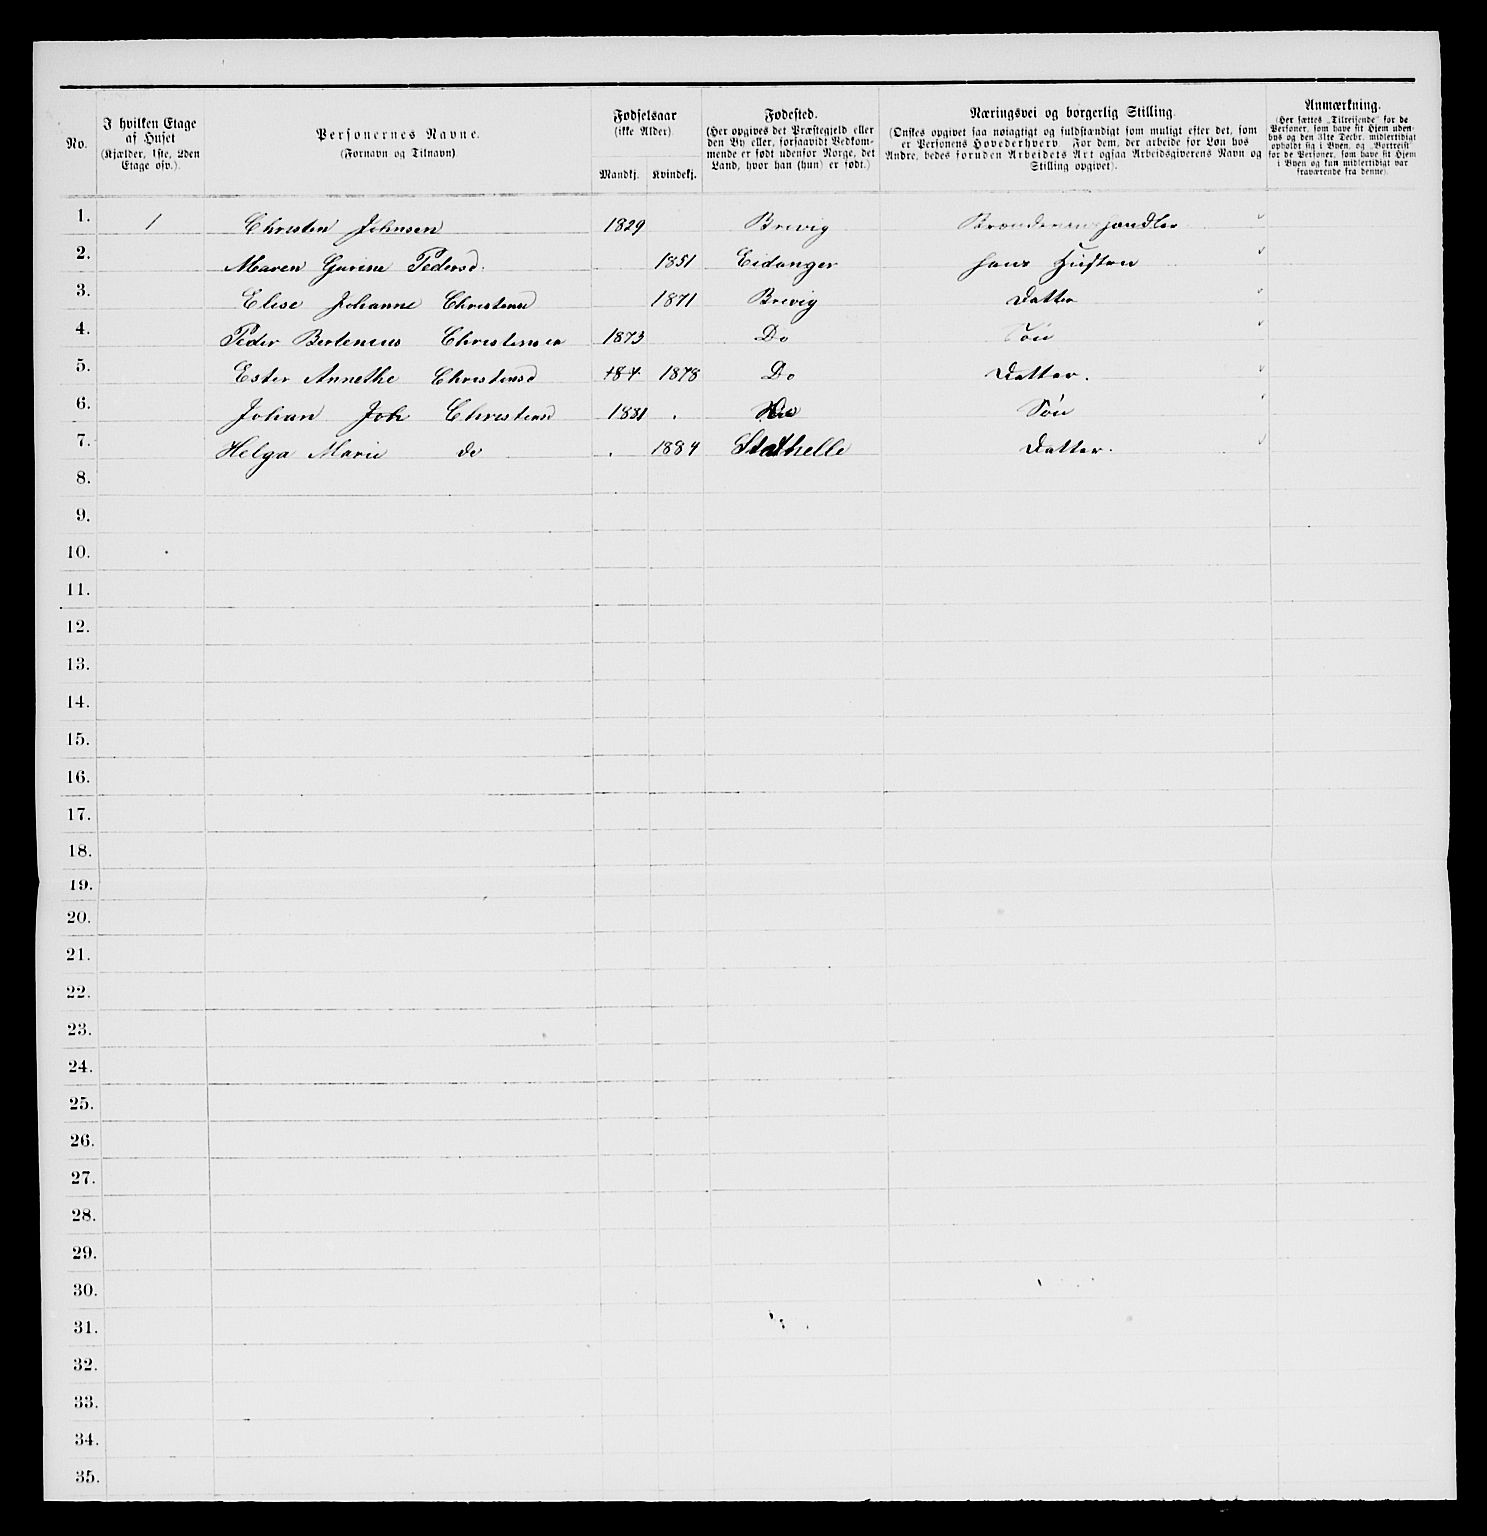 No.
I hvilken Etage
af Huset
(Kjælder, 1ste, 2den
Etage osv.).
Personernes Navne.
(Fornavn og Tilnavn)
Fødselsaar
(ikke Alder).
Mandkj. Kvindekj.
Fødested.
(Her opgives det Præstegjeld eller
den By eller, forsaavidt Vedkom-
mende er født udenfor Norge, det
Land, hvor han (hun) er født.)
Næringsvei og borgerlig Stilling
(Ønskes opgivet saa nøiagtigt og fuldstændigt som muligt efter det, som
er Personens Hovederhverv For dem, der arbeide for Løn hos
Andre, bedes foruden Arbeidets Art ogsaa Arbeidsgiverens Navn og
Stilling opgivet).
Anmærkning.
(Her sættes „Tilreisende“ for de
Personer, som have sit Hjem uden-
bys og den 31te Decbr. midlertidigt
opholdt sig i Byen, og „Bortreist“
for de Personer, som have sit Hjem
i Byen og kun midlertidigt var
fraværende fra denne).
1. 1 Christen Johnsen 1829 Brevig
2. Maren Gurine Pedersd. 1851 Eidanger hans Hustru
3. Elise Johanne Christensd 1871 Brevig Datter
4. Peder Bertenius Christensen 1873 Do Søn
5. Ester Annethe Christensd 187 1878 Do Datter.
6. Johan Joh Christensd 1881 . Søn
7. Helga Marie do . 1884 Stathelle Datter.
8.
9.
10.
11.
12.
13.
14.
15.
16.
17.
18.
19.
20.
21.
22.
23.
24.
25.
26.
27.
28.
29.
30.
31.
32.
33.
34.
35.